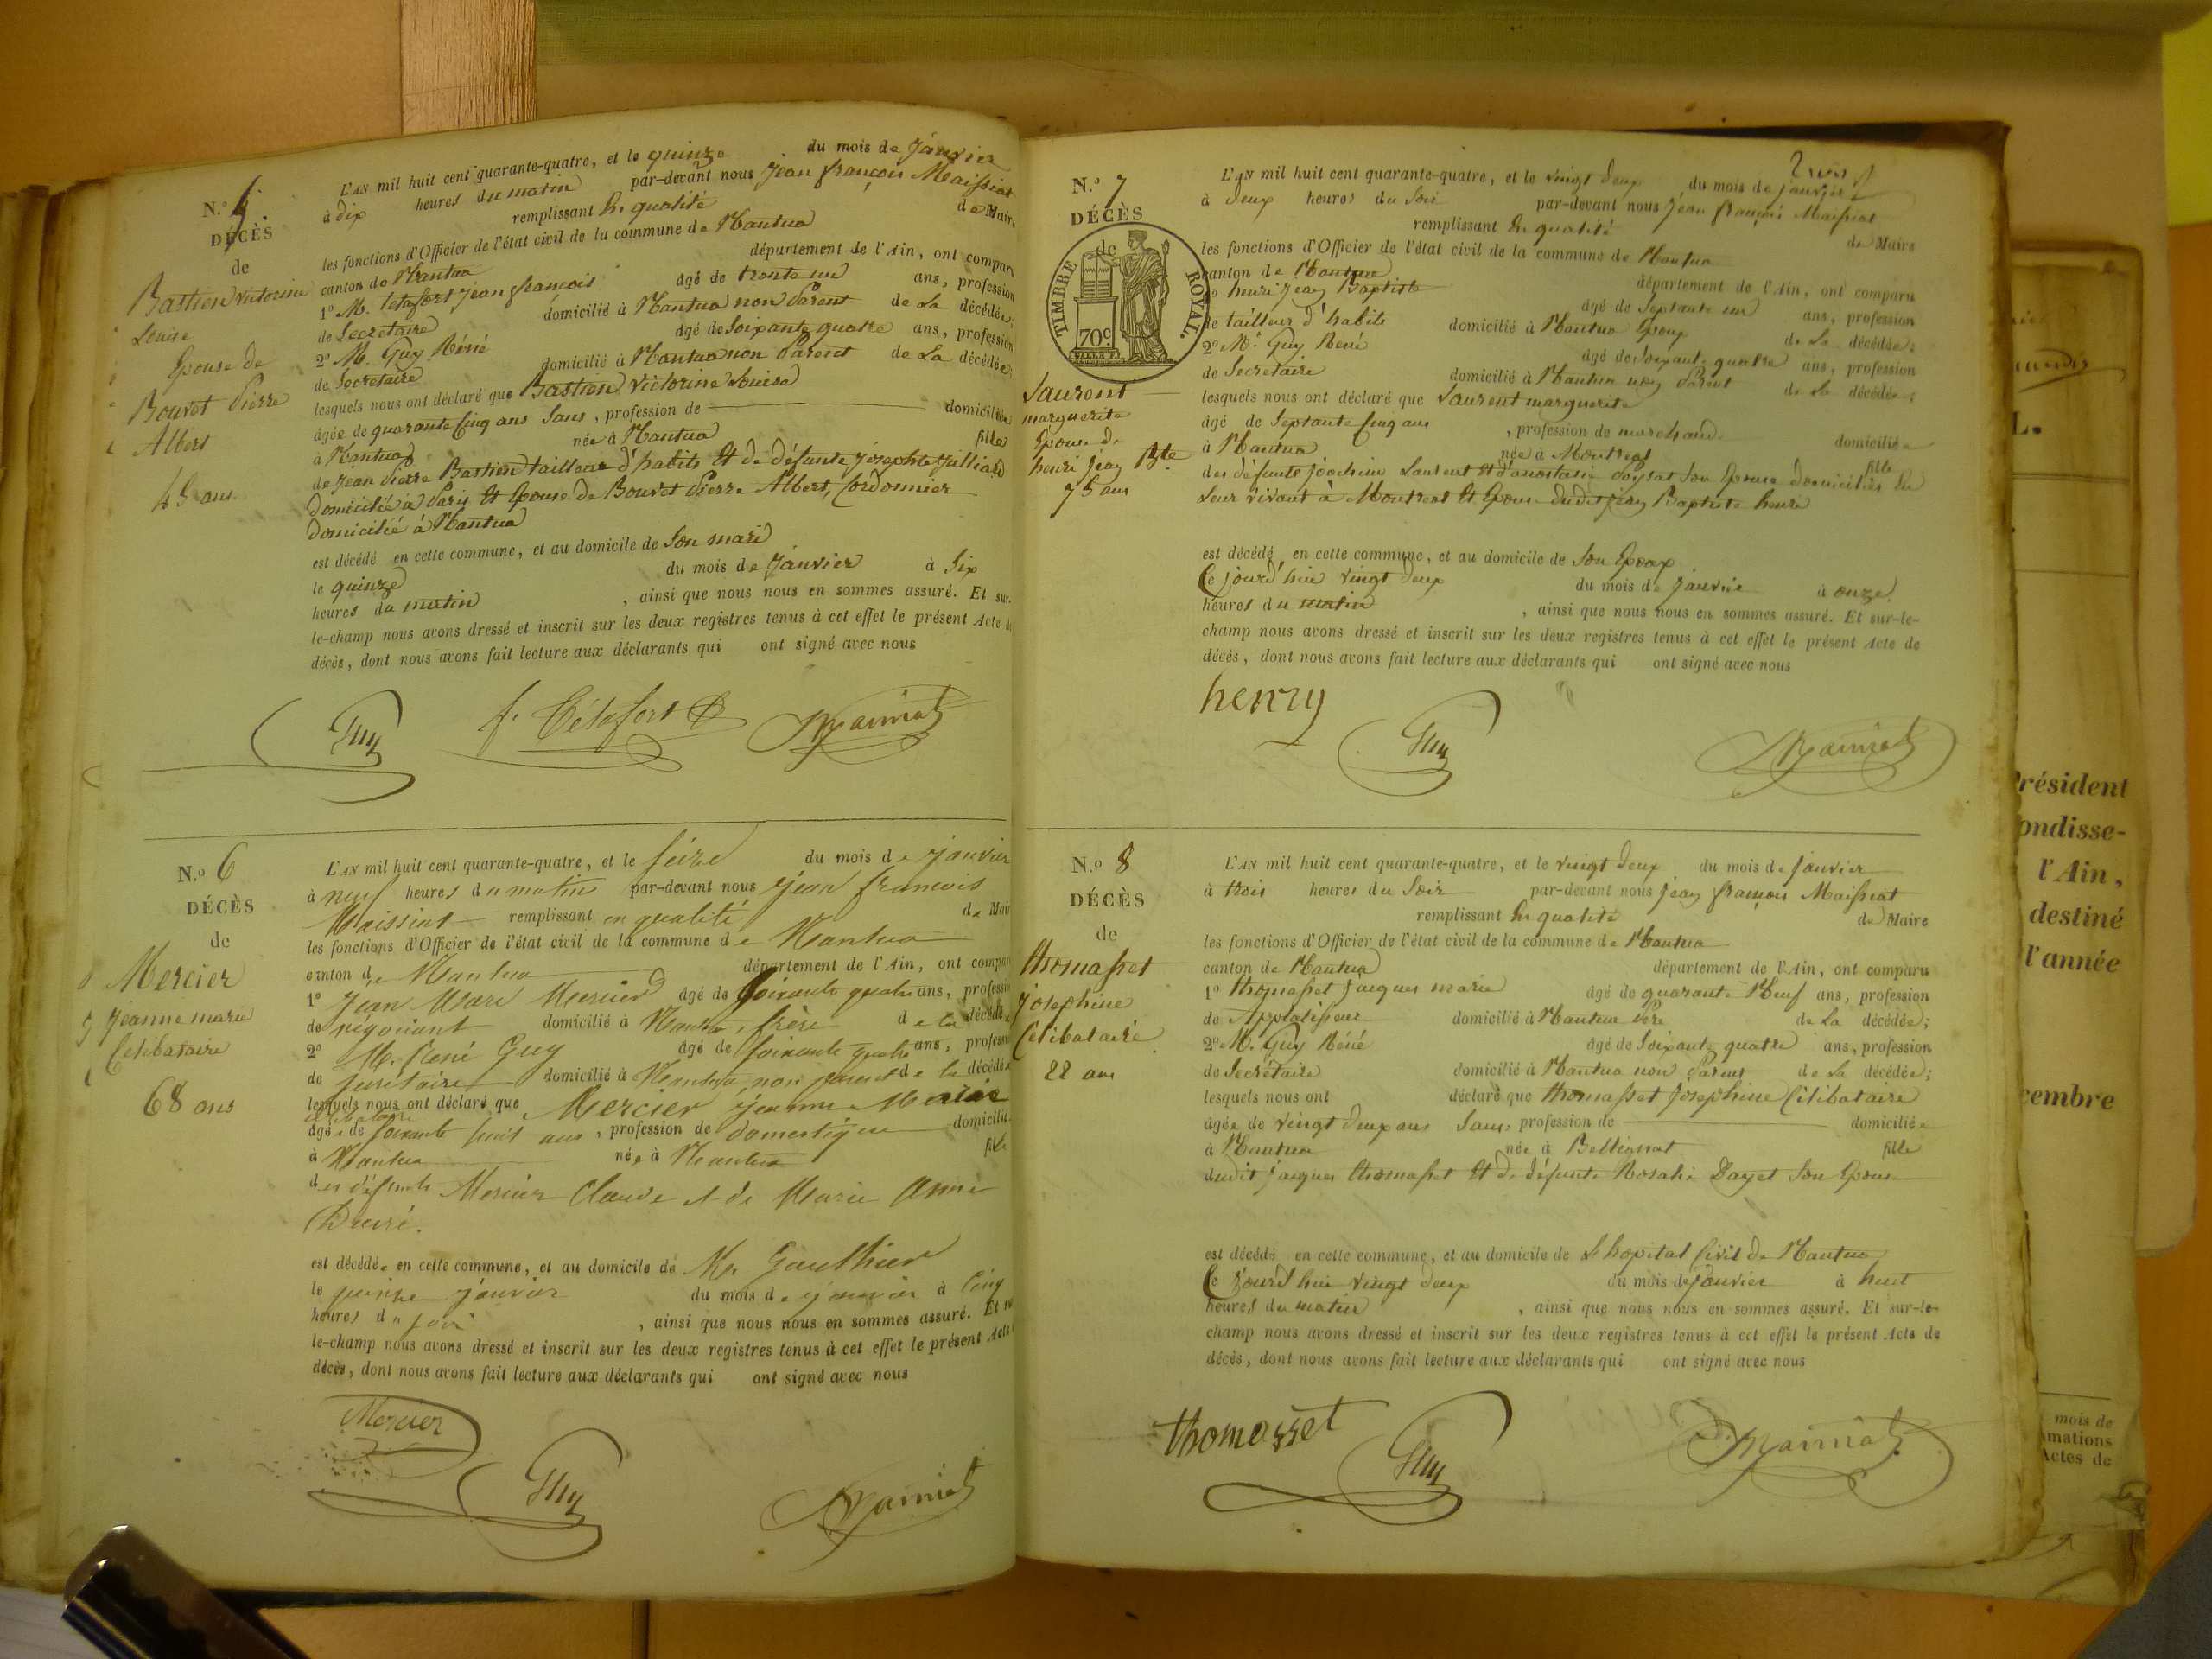 N.o
DÉCÈS
de
Bastien Victorine
Louise
Epouse de
Bouvet Pierre
Albert
45 ans
L'AN mil huit cent quarante-quatre, et le quinze du mois de janvier
à dix heures du matin par-devant nous Jean françois Maissiat
remplissant En qualité de Maire
les fonctions d'Officier de l'état civil de la commune de Nantua
canton de Nantua département de l'Ain, ont comparu
1o M. tetafort Jean francois agé de trente un ans, profession
de Secrétaire domicilié à Nantua non Parent de La décédée;
2o M. Guy Réné agé de Soixante quatre ans, profession
de Secretaire domicilié à Nantua non Parent de La décédée;
lesquels nous ont déclaré que Bastien Victorine Louise
âgée de quarante Cinq ans Sans, profession de domiciliée
à Nantua née à Nantua fille
de Jean Pierre Bastien tailleur d'habits Et de défunte Josephte Julliard
Domicilié à Paris Et Epouse de Bouvet Pierre Albert, Cordonnier
Domicilié à Nantua
est décédé en cette commune, et au domicile de Son mari
le quinze du mois de Janvier à Six
heures du matin, ainsi que nous nous en sommes assuré. Et sur-
le-champ nous avons dressé et inscrit sur les deux registres tenus à cet effet le présent Acte de
décès, dont nous avons fait lecture aux déclarants qui ont signé avec nous
Guy f. Tétafort Maissiat
N.o 6
DÉCÈS
de
Mercier
Jeanne marie
Célibataire
68 ans
L'AN mil huit cent quarante-quatre, et le seize du mois de janvier
à neuf heures du matin par-devant nous Jean francois
Maissiat remplissant en qualité de Maire
les fonctions d'Officier de l'état civil de la commune de Nantua
canton de Nantua département de l'Ain, ont comparu
1o Jean Marc Mercier agé de Soixante quatre ans, profession
de négociant domicilié à Nantua, frère de la décédée
2o M. René Guy agé de soixante quatre ans, profession
de secritaire domicilié à Nantua non parent de la décédée
lesquels nous ont déclaré que Mercier jeanne Marie
célibataire
âgée de soixante huit ans, profession de domestique domiciliée
à Nantua née à Nantua fille
des défunts Mercier Claude et de Marie Anne
est décédée en cette commune, et au domicile de Mr. Gauthier
le quinze janvier du mois de janvier à Cinq
heures du soir, ainsi que nous nous en sommes assuré. Et sur-
le-champ nous avons dressé et inscrit sur les deux registres tenus à cet effet le présent Acte
décès, dont nous avons fait lecture aux déclarants qui ont signé avec nous
Mercier
Guy Maissiat
N.o 7
DÉCÈS
de
TIMBRE ROYAL.
70c
Laurent
marguerite
Epouse de
henri Jean Bte
75 ans
L'AN mil huit cent quarante-quatre, et le vingt Deux du mois de janvier
à Deux heures du Soir par-devant nous Jean françois Maissiat
remplissant En qualité de Maire
les fonctions d'Officier de l'état civil de la commune de Nantua
canton de Nantua département de l'Ain, ont comparu
1o henri Jean Baptiste agé de Septante un ans, profession
de tailleur d'habits domicilié à Nantua Epoux de La décédée;
2o Mr. Guy René agé de Soixante quatre ans, profession
de Secretaire domicilié à Nantua non Parent de La décédée;
lesquels nous ont déclaré que Laurent marguerite
âgé de Septante Cinq ans, profession de marchande domiciliée
à Nantua née à Montreal fille
des défunts Joachim Laurent Et d'anastasie Son Epouse Domiciliés De
Leur vivant à Montreal Et Epouse dudit Jean Baptiste henri
est décédé en cette commune, et au domicile de Son Epoux
Ce jourd'hui vingt Deux du mois de janvier à onze
heures du matin, ainsi que nous nous en sommes assuré. Et sur-le-
champ nous avons dressé et inscrit sur les deux registres tenus à cet effet le présent Acte de
décès, dont nous avons fait lecture aux déclarants qui ont signé avec nous
henry
Guy Maissiat
N.o 8
DÉCÈS
de
thomasset
josephine
Célibataire
22 ans
L'AN mil huit cent quarante-quatre, et le vingt Deux du mois de janvier
à trois heures du Soir par-devant nous Jean françois Maissiat
remplissant En qualité de Maire
les fonctions d'Officier de l'état civil de la commune de Nantua
canton de Nantua département de l'Ain, ont comparu
1o thomasset Jacques marie agé de quarante Neuf ans, profession
de domicilié à Nantua Père de La décédée;
2o M. Guy Réné agé de Soixante quatre ans, profession
de Secrétaire domicilié à Nantua non Parent de La décédée;
lesquels nous ont déclaré que thomasset Josephine Célibataire
âgée de vingt Deux ans Sans, profession de domiciliée
à Nantua née à Bellignat fille
dudit Jacques thomasset Et de défunte Rosalie Dayet Son Epouse
est décédé en cette commune, et au domicile de L'hopital Civil De Nantua
Ce jourd'hui vingt deux du mois de janvier à huit
heures du matin, ainsi que nous nous en sommes assuré. Et sur-le-
champ nous avons dressé et inscrit sur les deux registres tenus à cet effet le présent Acte de
décès, dont nous avons fait lecture aux déclarants qui ont signé avec nous
thomasset
Guy Maissiat
L.
Président
ondisse-
l'Ain,
destiné
l'année
cembre
mois de
mations
Actes de